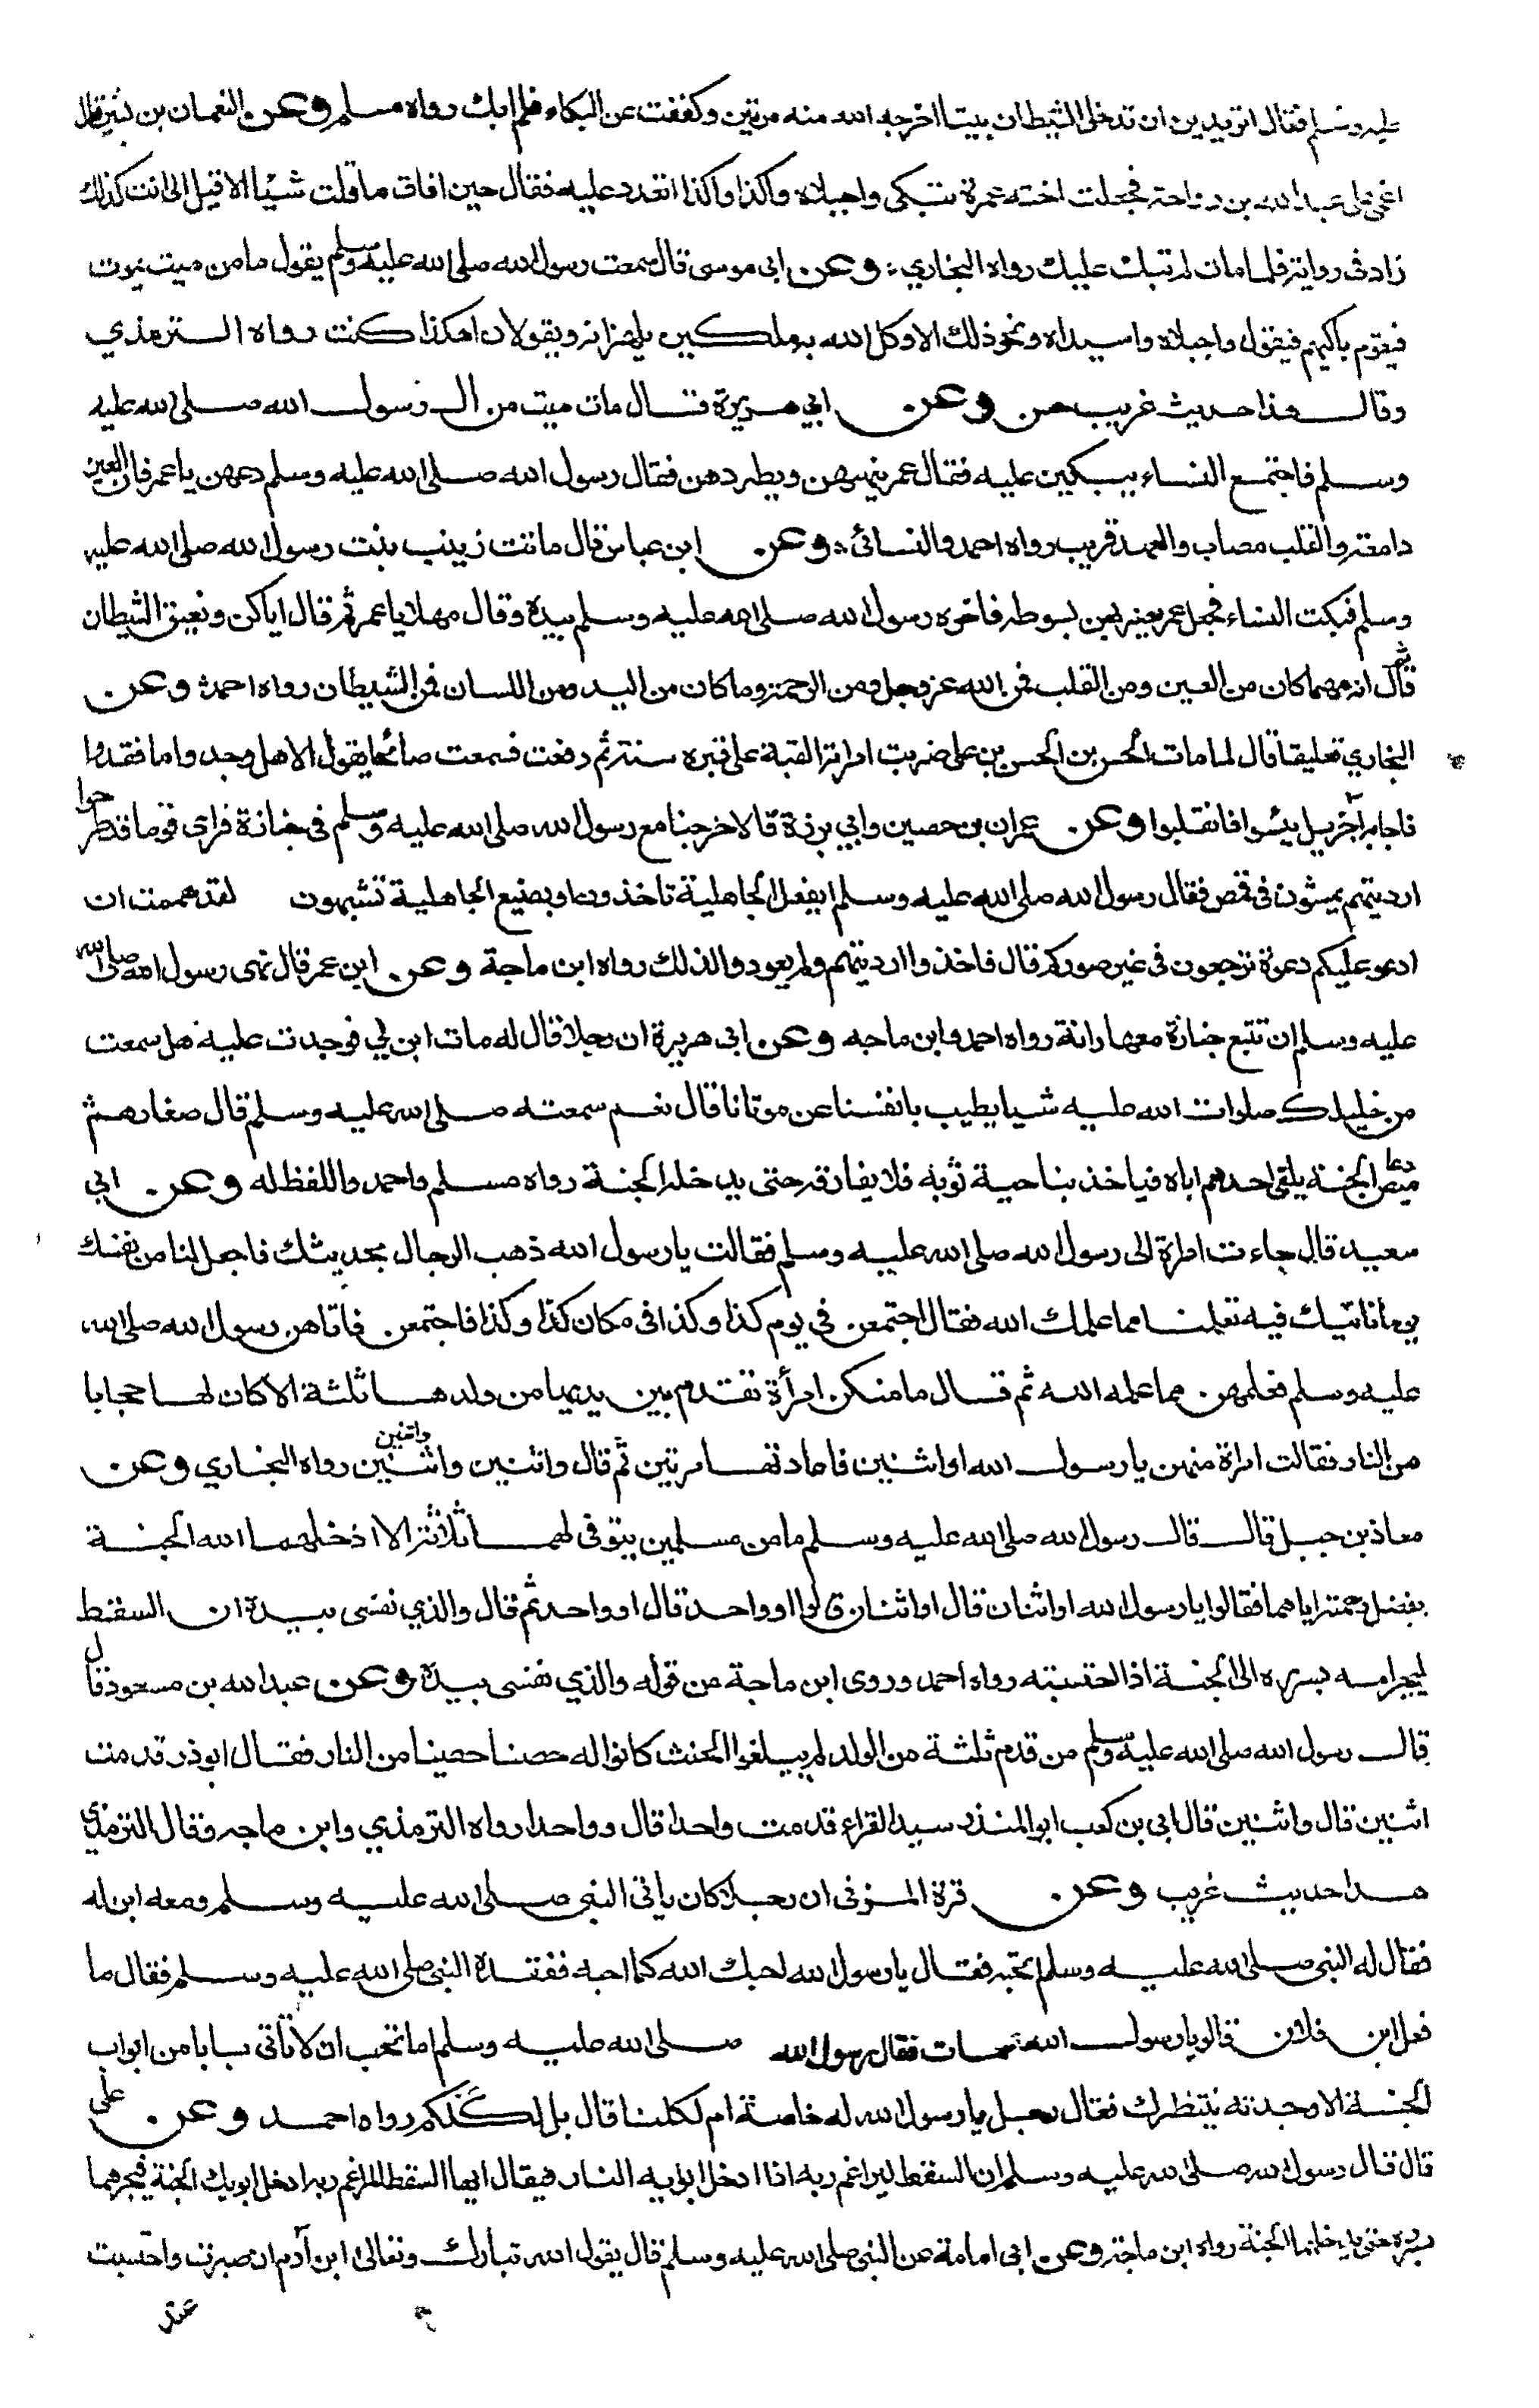 عليه وسلم فقال اتريدين ان تدخلي الشيطان بيتا اخرجه الله منه مرتين وكففت عن البكاء فلم ابك رواه مسلم وعن النعمان بن بشير قال
اغمي على عبد الله بن رواحة فجعلت اخته عمرة تبكي واجبلاه واكذا واكذا تعدد عليه فقال حين افاق ما قلت شيئا الا قيل لي انت كذلك
زاد في رواية فلما مات لم تبك عليك رواه البخاري وعن ابي موسى قال سمعت رسول الله صلى الله عليه وسلم يقول ما من ميت يموت
فيقوم باكيهم فيقول واجبلاه واسيداه ونحو ذلك الا وكل الله به ملكين يلهزانه ويقولان اهكذا كنت رواه الترمذي
وقال هذا حديث غريب حسن وعن ابي هريرة قال مات ميت من ال رسول الله صلى الله عليه
وسلم فاجتمع النساء يبكين عليه فقال عمر ينهيهن ويطردهن فقال رسول الله صلى الله عليه وسلم دعهن يا عمر فان العين
دامعة والقلب مصاب والعهد قريب رواه احمد والنسائي وعن ابن عباس قال ماتت زينب بنت رسول الله صلى الله عليه
وسلم فبكت النساء فجعل عمر يضربهن بسوطه فاخره رسول الله صلى الله عليه وسلم بيده وقال مهلا يا عمر ثم قال اياكن ونعيق الشيطان
ثم قال انه مهما كان من العين ومن القلب فمن الله عز وجل ومن الرحمة وما كان من اليد ومن اللسان فمن الشيطان رواه احمد وعن
البخاري تعليقا قال لما مات الحسن بن الحسن بن علي ضربت امراته القبة على قبره سنة ثم رفعت فسمعت صائحا يقول الا هل وجدوا ما فقدوا
فاجابه آخر بل يئسوا فانقلبوا وعن عمران بن حصين وابي برزة قالا خرجنا مع رسول الله صلى الله عليه وسلم في جنازة فراى قوما قد طرحوا
ارديتهم يمشون في قمص فقال رسول الله صلى الله عليه وسلم ابفعل الجاهلية تاخذون او بصنيع الجاهلية تشبهون لقد هممت ان
ادعو عليكم دعوة ترجعون في غير صوركم قال فاخذوا ارديتهم ولم يعودوا لذلك رواه ابن ماجة وعن ابن عمر قال نهى رسول الله صلى الله
عليه وسلم ان تتبع جنازة معها رانة رواه احمد وابن ماجه وعن ابي هريرة ان رجلا قال له مات ابن لي فوجدت عليه هل سمعت
من خليلك صلوات الله عليه شيا يطيب بانفسنا عن موتانا قال نعم سمعته صلى الله عليه وسلم قال صغارهم
دعاميص الجنة يلقى احدهم اباه فياخذ بناحية ثوبه فلا يفارقه حتى يدخله الجنة رواه مسلم واحمد واللفظ له وعن ابي
سعيد قال جاءت امراة الى رسول الله صلى الله عليه وسلم فقالت يا رسول الله ذهب الرجال بحديثك فاجعل لنا من نفسك
يوما ناتيك فيه تعلمنا مما علمك الله فقال اجتمعن في يوم كذا وكذا في مكان كذا وكذا فاجتمعن فاتاهن رسول الله صلى الله
عليه وسلم فعلمهن مما علمه الله ثم قال ما منكن امرأة تقدم بين يديها من ولدها ثلثة الا كان لها حجابا
من النار فقالت امراة منهن يا رسول الله او اثنين فاعادتها مرتين ثم قال واثنين واثنين واثنين رواه البخاري وعن
معاذ بن جبل قال قال رسول الله صلى الله عليه وسلم ما من مسلمين يتوفى لهما ثلاثة الا ادخلهما الله الجنة
بفضل رحمته اياهما فقالوا يا رسول الله او اثنان قال او اثنان قالوا او واحد قال او واحد ثم قال والذي نفسي بيده ان السقط
ليجر امه بسرره الى الجنة اذا احتسبته رواه احمد وروى ابن ماجة من قوله والذي نفسي بيده وعن عبد الله بن مسعود قال
قال رسول الله صلى الله عليه وسلم من قدم ثلثة من الولد لم يبلغوا الحنث كانوا له حصنا حصينا من النار فقال ابو ذر قدمت
اثنين قال واثنين قال ابي بن كعب ابو المنذر سيد القراء قدمت واحدا قال وواحدا رواه الترمذي وابن ماجه وقال الترمذي
هذا حديث غريب وعن قرة المزني ان رجلا كان ياتي النبي صلى الله عليه وسلم ومعه ابن له
فقال له النبي صلى الله عليه وسلم اتحبه فقال يا رسول الله احبك الله كما احبه ففقده النبي صلى الله عليه وسلم فقال ما
فعل ابن فلان قالوا يا رسول الله مات فقال رسول الله صلى الله عليه وسلم اما تحب ان لا تأتي بابا من ابواب
الجنة الا وجدته ينتظرك فقال رجل يا رسول الله له خاصة ام لكلنا قال بل لكلكم رواه احمد وعن علي
قال قال رسول الله صلى الله عليه وسلم ان السقط ليراغم ربه اذا ادخل ابويه النار فيقال ايها السقط المراغم ربه ادخل ابويك الجنة فيجرهما
بسرره حتى يدخلهما الجنة رواه ابن ماجة وعن ابي امامة عن النبي صلى الله عليه وسلم قال يقول الله تبارك وتعالى ابن آدم ان صبرت واحتسبت
عند